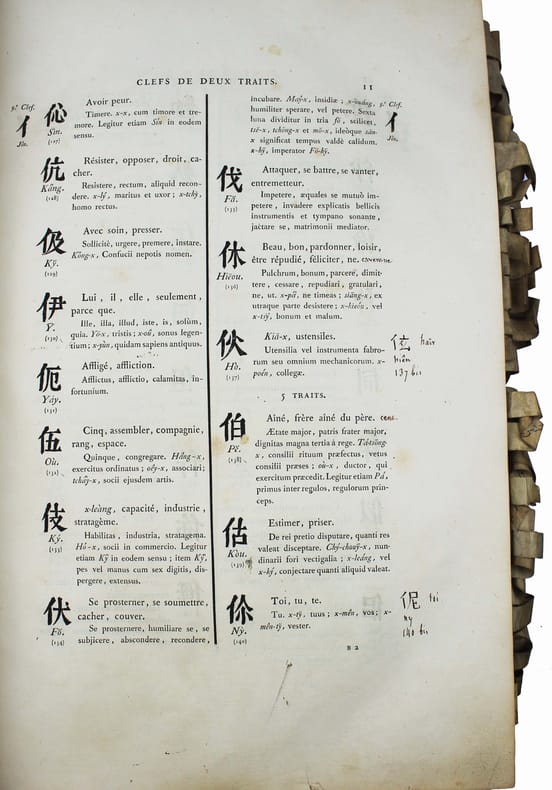 CLEFS DE DEUX TRAITS.
11
9.ᵉ Clef.
亻
Jin.
伈
Sin.
(127)
Avoir peur.
Timere. x-x, cum timore et tre-
more. Legitur etiam Sin in eodem
sensu.
伉
Káng.
(128)
Résister, opposer, droit, ca-
cher.
Resistere, rectum, aliquid recon-
dere. x-ly, maritus et uxor; x-tchy,
homo rectus.
伋
Ky.
(129)
Avec soin, presser.
Sollicitè, urgere, premere, instare.
Kong-x, Confucii nepotis nomen.
伊
Y.
(130)
Lui, il, elle, seulement,
parce que.
Ille, illa, illud, iste, is, solùm,
quia. Yo-x, tristis; x-oû, sonus legen-
tium; x-yùn, quidam sapiens antiquus.
伌
Yáy.
(131)
Affligé, affliction.
Afflictus, afflictio, calamitas, in-
fortunium.
伍
Où.
(132)
Cinq, assembler, compagnie,
rang, espace.
Quinque, congregare. Hâng-x,
exercitus ordinatus; oêy-x, associari;
tchây-x, socii ejusdem artis.
伎
Ký.
(133)
x-leàng, capacité, industrie,
stratagème.
Habilitas, industria, stratagema.
Hò-x, socii in commercio. Legitur
etiam Ky in eodem sensu; item Ky,
pes vel manus cum sex digitis, dis-
pergere, extensus.
伏
Fŏ.
(134)
Se prosterner, se soumettre,
cacher, couver.
Se prosternere, humiliare se, se
subjicere, abscondere, recondere,
incubare. Maÿ-x, insidiæ;
humiliter sperare, vel petere. Sexta
luna dividitur in tria fŏ, scilicet,
x, tchông-x et mŏ-x, ideòque sān-
x significat tempus valdè calidum.
x-hȳ, imperator Fŏ-hȳ.
9.ᵉ Clef.
亻
Jin.
伐
Fă.
(135)
Attaquer, se battre, se vanter,
entremetteur.
Impetere, æquales se mutuò im-
petere, invadere explicatis bellicis
instrumentis et tympano sonante,
jactare se, matrimonii mediator.
休
Hieou.
(136)
Beau, bon, pardonner, loisir,
être répudié, féliciter, ne.
Pulchrum, bonum, parcere, dimit-
tere, cessare, repudiari, gratulari,
ne, ut. x-pá, ne timeas; siāng-x, ex
utraque parte desistere; x-kieóu, vel
x-tsy, bonum et malum.
伙
Ho.
(137)
Kiā-x, ustensiles.
Utensilia vel instrumenta fabro-
rum seu omnium mechanicorum. x-
poén, collegæ.
hair
hién
137 bis
5 TRAITS.
伯
Pĕ.
(138)
Aîné, frère aîné du père. cent.
Ætate major, patris frater major,
dignitas magna tertia à rege.
x, consilii rituum præfectus, vetus
consilii præses; où-x, ductor, qui
exercitum præcedit. Legitur etiam Pá,
primus inter regulos, regulorum prin-
ceps.
估
Kòu.
(139)
Estimer, priser.
De rei pretio disputare, quanti res
valeat disceptare. Ché-chaoÿ-x, nun-
dinarii fori vectigalia; x-leáng, vel
x-ký, conjectare quanti aliquid valeat.
你
Ny.
(140)
Toi, tu, te.
Tu. x-ty, tuus; x-mên, vos; x-
mên-ty, vester.
伲 toi
ny
140 bis
B 2